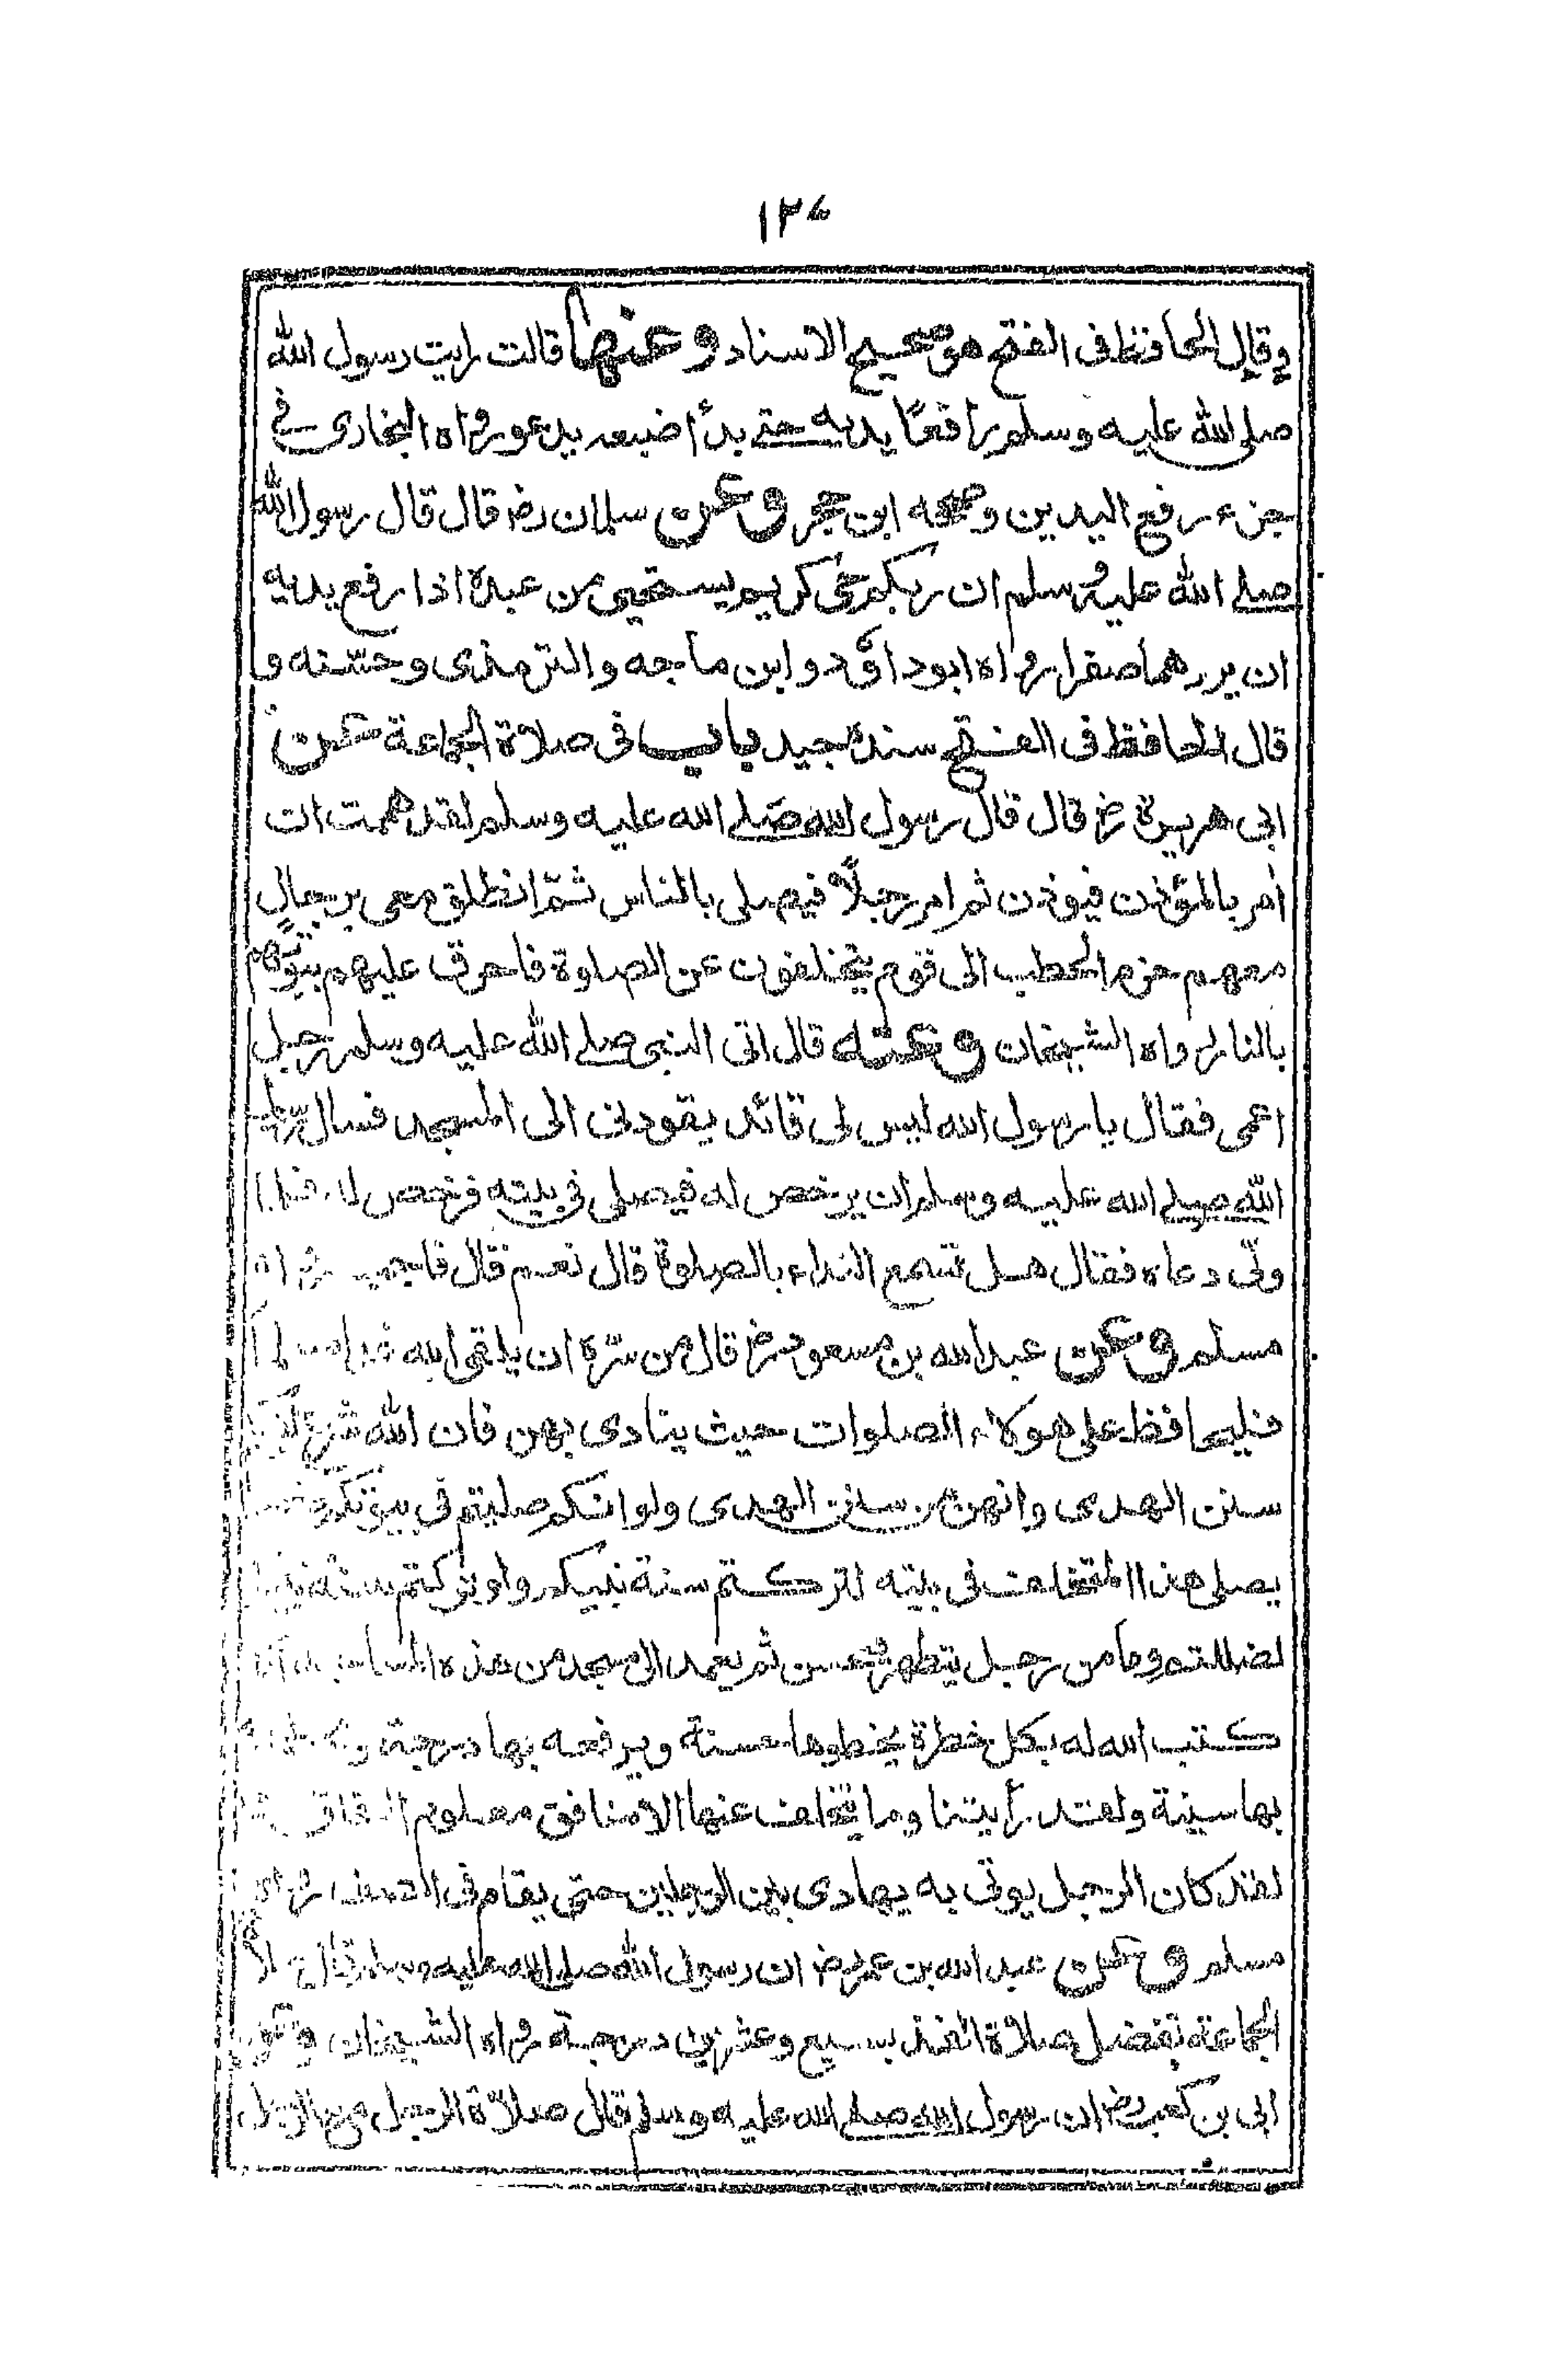 وقال الحافظ فى الفتح هو صحيح الاسناد وعنها قالت رايت رسول الله
صلى الله عليه وسلم رافعًا يديه حتى بدأ ضبعه يدعو رواه البخارى فى
جزء رفع اليدين وصححه ابن حجر وعن سلمان رض قال قال رسول الله
صلى الله عليه وسلم ان ربكم حى كريم يستحيى من عبده اذا رفع يديه
ان يردهما صفرا رواه ابوداؤد وابن ماجه والترمذى وحسّنه و
قال الحافظ فى الفتح سنده جيد باب فى صلاة الجماعة عن
ابى هريرة رض قال قال رسول الله صلى الله عليه وسلم لقد هممت ان
اٰمر بالمؤذن فيوذن ثم امر رجلاً فيصلى بالناس ثمّ انطلق معى برجال
معهم حزم الحطب الى قوم يتخلفون عن الصلوة فاحرق عليهم بيوتهم
بالنار رواه الشيخان وعنه قال اتى النبى صلى الله عليه وسلم رجل
اعمى فقال يا رسول الله ليس لى قائد يقودنى الى المسجد فسال
الله صلى الله عليه وسلم ان يرخص له فيصلى فى بيته فرخص له فلما
ولّى دعاه فقال هل تسمع النداء بالصلوة قال نعم قال فاجب رواه
مسلم وعن عبد الله بن مسعود رض قال من سرّه ان يلقى الله غدا
فليحافظ على هولاء الصلوات حيث ينادى بهن فان الله شرع
سنن الهدى وانهن من سنن الهدى ولو انكم صليتم فى بيوتكم
يصلى هذا المتخلف فى بيته لتركتم سنة نبيكم ولو تركتم سنة
لضللتم وما من رجل يتطهر فيحسن ثم يعمد الى مسجد من هذه المساجد
كتب الله له بكل خطوة يخطوها حسنة ويرفعه بها درجة
بها سيئة ولقد رأيتنا وما يتخلف عنها الا منافق معلوم النفاق
لقد كان الرجل يوتى به يهادى بين الرجلين حتى يقام فى الصف رواه
مسلم وعن عبد الله بن عمر رض ان رسول الله صلى الله عليه وسلم قال
الجماعة تفضل صلاة الفذ بسبع وعشرين درجة رواه الشيخان وعن
ابى بن كعب رض ان رسول الله صلى الله عليه وسلم قال صلاة الرجل مع الرجل